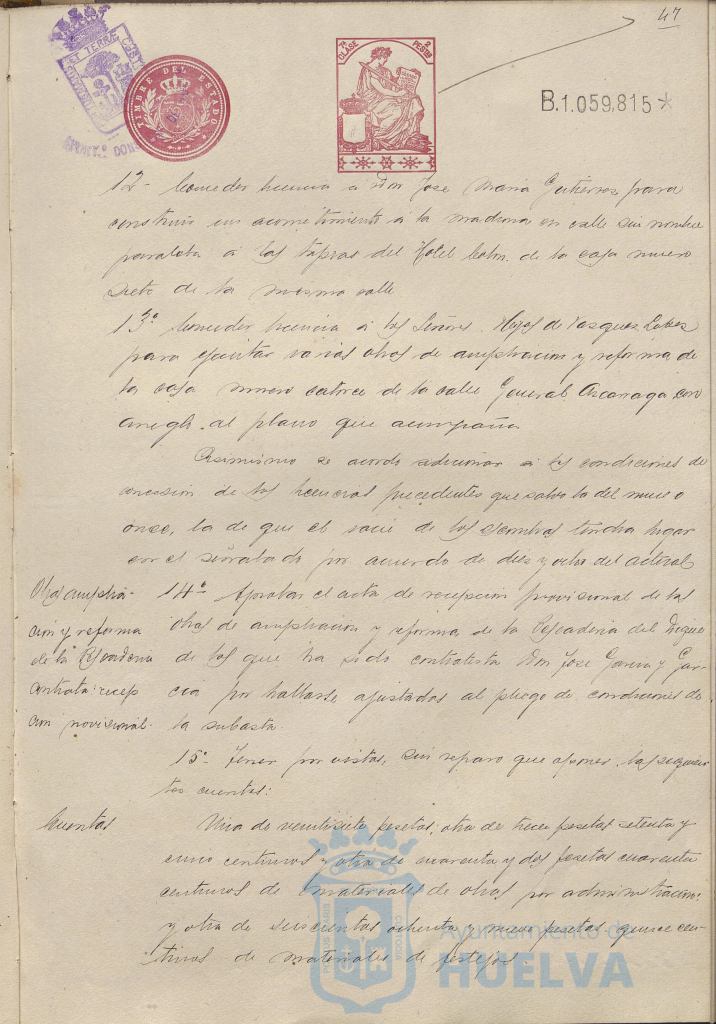 47
TIMBRE DEL ESTADO
7ª CLASE
2 PESTAS
B.1.059,815*
12- Conceder licencia a Don Jose Maria Gutierrez para
construir un acometimiento a la madrona en calle sin nombre
paralela a las tapias del Hotel Colon de la casa numero
siete de la misma calle
13º Conceder licencia a los Señores Hijos de Vazquez Lopez
para ejecutar varias obras de ampliacion y reforma de
la casa numero catorce de la calle General Azcarraga con
arreglo al plano que acompaña
Asimismo se acordo adicionar a las condiciones de
concesion de las licencias precedentes que salvo la del numero
once, la de que el vacie de los escombros tendra lugar
en el señalado por acuerdo de diez y ocho del actual
Obras amplia-
cion y reforma
de la Pescaderia
contrata: recep
cion provisional.
14º Aprobar el acta de recepcion provisional de las
obras de ampliacion y reforma de la Pescaderia del Dique
de las que ha sido contratista Don Jose Garcia y Gar-
cia por hallarse ajustadas al pliego de condiciones de
la subasta.
15º Tener por vistas, sin reparo que oponer, las siguien
tes cuentas:
Cuentas
Una de veintisiete pesetas; otra de trece pesetas setenta y
cinco centimos y otra de cuarenta y dos pesetas cuarenta
centimos de materiales de obras por administracion;
y otra de seiscientas ochenta y nueve pesetas quince cen-
timos de materiales de festejos.
PORTUS MARIS
CUSTODIA
Ayuntamiento de
HUELVA